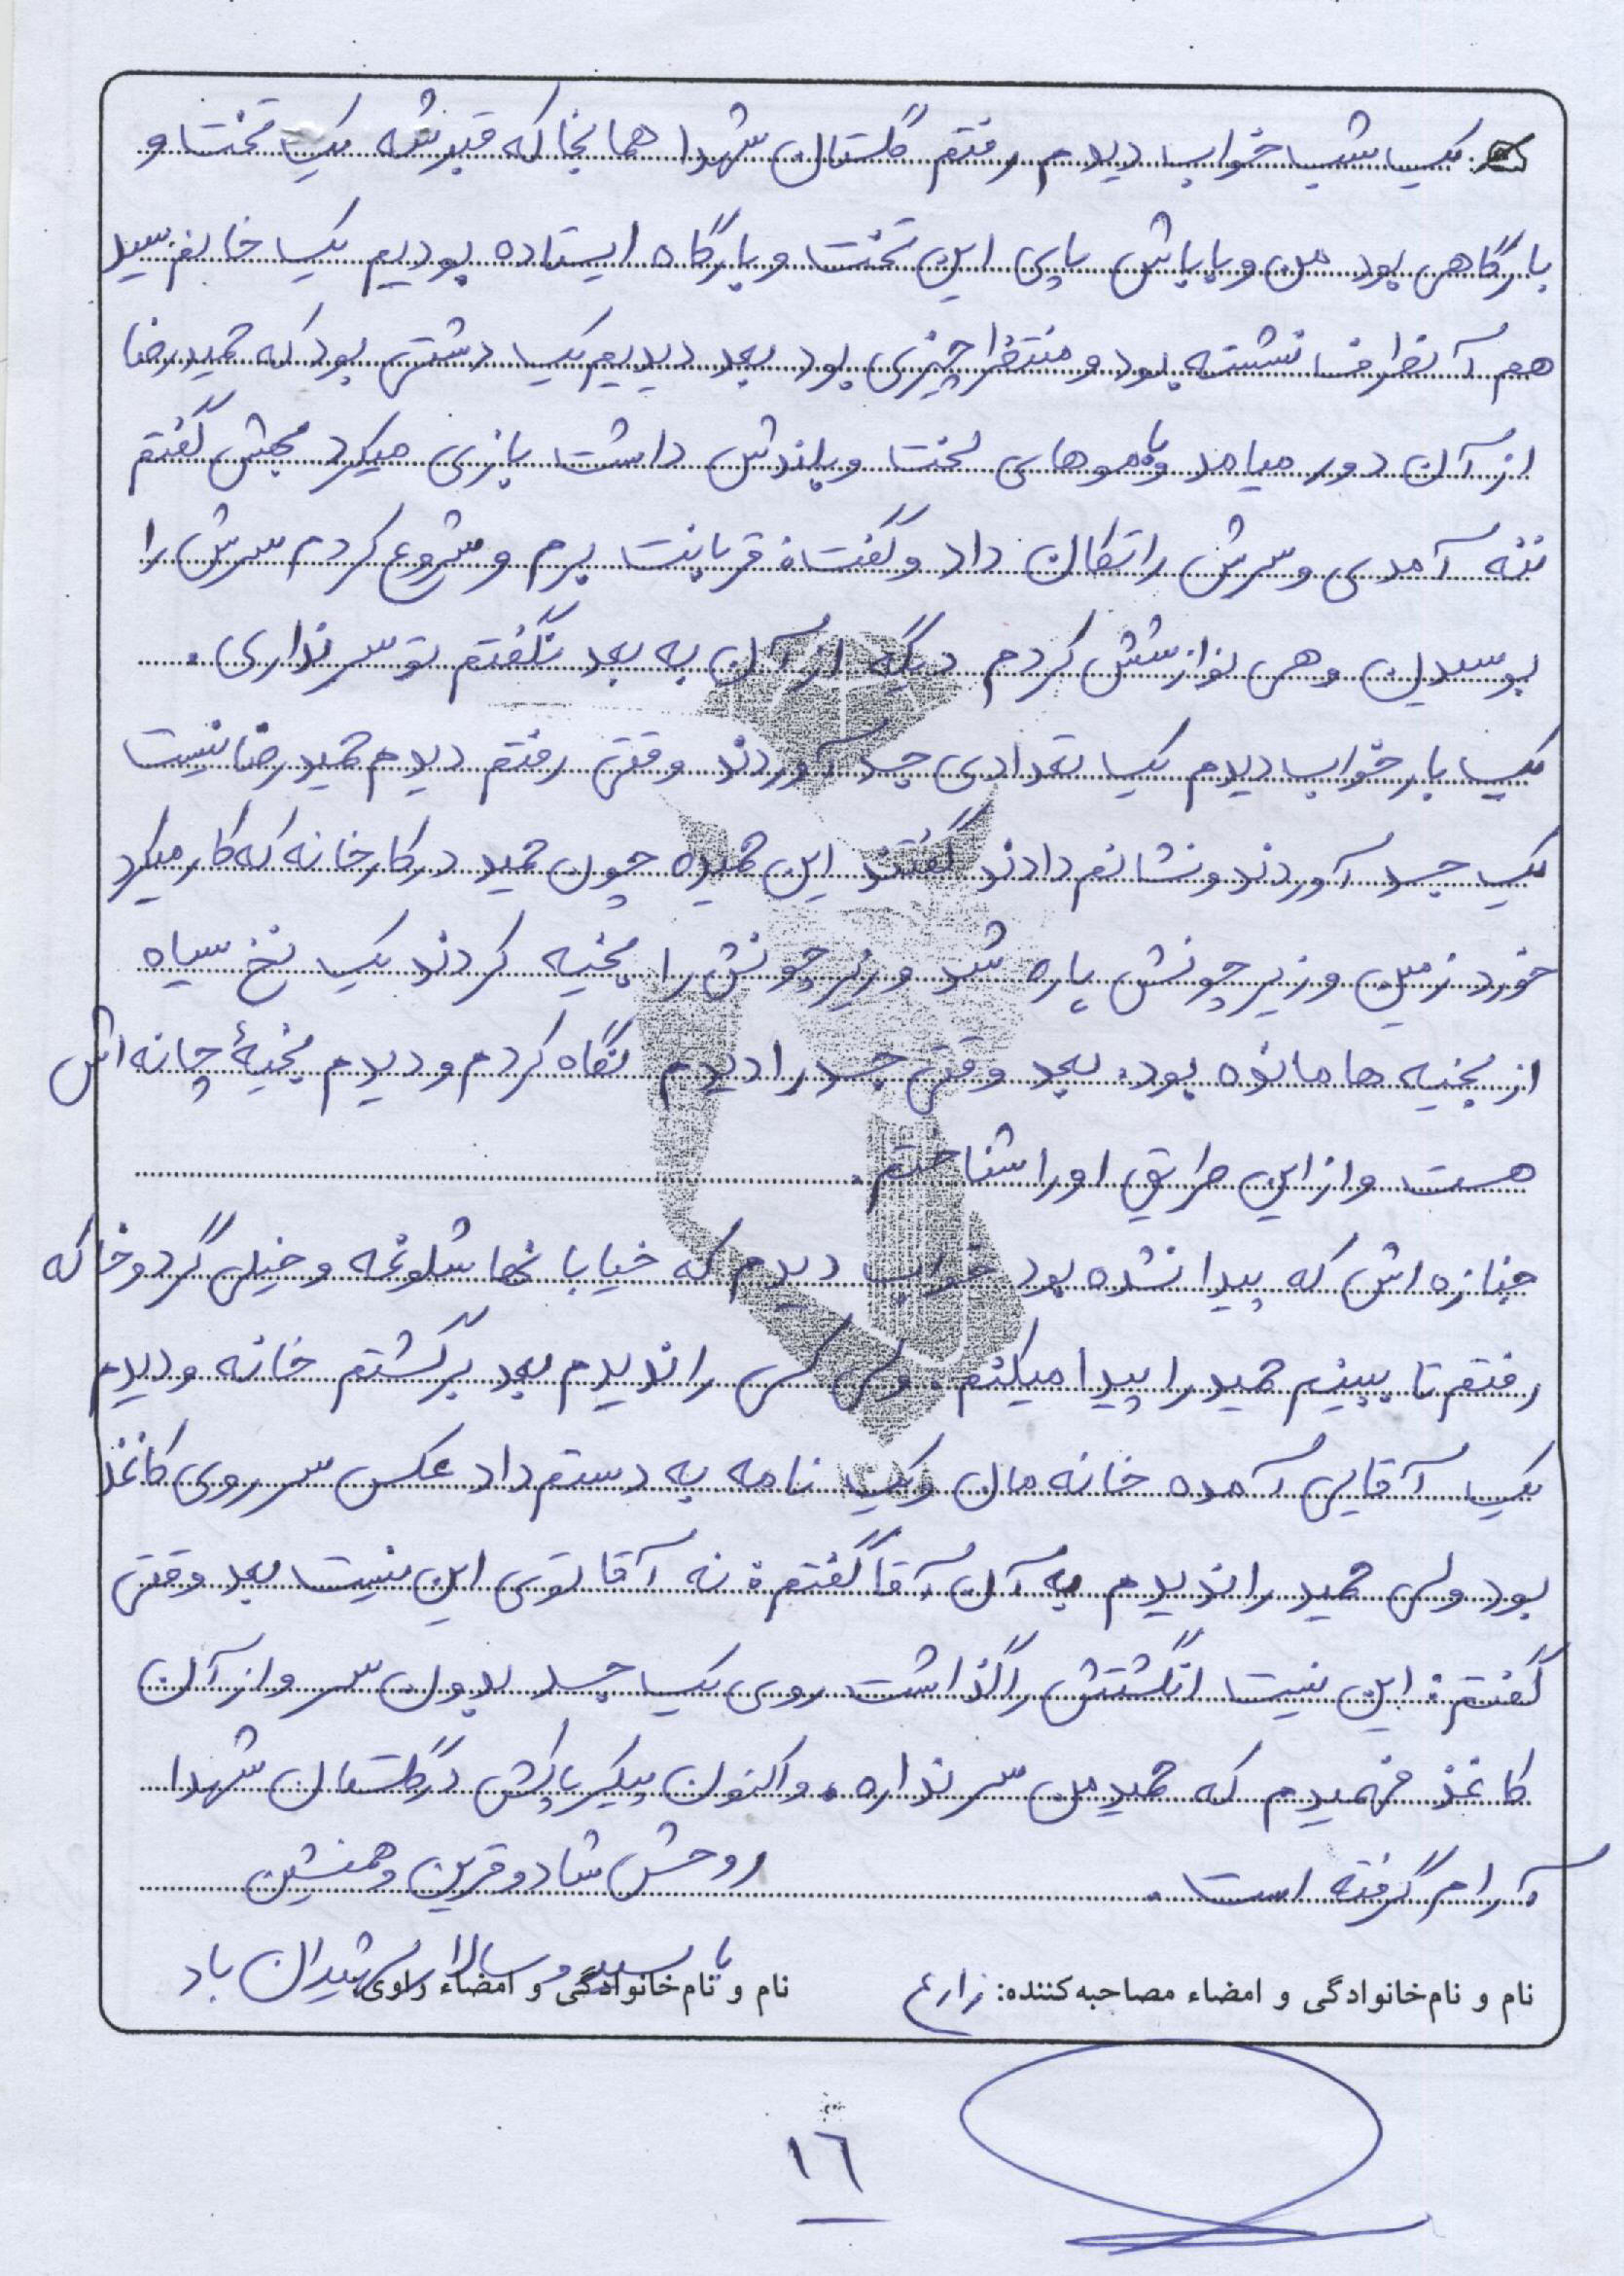 یک شب خواب دیدم رفتم گلستان شهدا همانجا که قبرشه یک تخت و
بارگاهی بود من و باباش پای این تخت و بارگاه ایستاده بودیم یک خانم سید
هم آنطرف نشسته بود و منتظر چیزی بود بعد دیدیم یک دشتی بود که حمیدرضا
از آن دور میامد و با موهای لخت و بلندش داشت بازی میکرد بهش گفتم
ننه آمدی و سرش را تکان داد و گفت: قربانت برم و شروع کردم سرش را
بوسیدن و هی نوازشش کردم دیگه از آن به بعد نگفتم تو سر نداری.
یک بار خواب دیدم یک تعدادی جسد آوردند وقتی رفتم دیدم حمیدرضا نیست
یک جسد آوردند و نشانم دادند گفتند این حمیده چون حمید در کارخانه که کار میکرد
خورد زمین و زیر چونش پاره شد و زیر چونش را بخیه کردند یک نخ سیاه
از بخیه ها مانده بود. بعد وقتی جسد را دیدم نگاه کردم و دیدم بخیهٔ چانه اش
هست و از این طریق او را شناختم.
جنازه اش که پیدا نشده بود خواب دیدم که خیابانها شلوغه و خیلی گرد و خاکه
رفتم تا ببینم حمید را پیدا میکنم. ولی کسی را ندیدم بعد برگشتم خانه و دیدم
یک آقایی آمده خانه مان و یک نامه به دستم داد عکس سر روی کاغذ
بود ولی حمید را ندیدم به آن آقا گفتم: نه آقا توی این نیست بعد وقتی
گفتم: این نیست انگشتش را گذاشت روی یک جسد بدون سر و از آن
کاغذ فهمیدم که حمید من سر نداره. و اکنون پیکر پاکش در گلستان شهدا
آرام گرفته است. روحش شاد و قرین و همنشین
با سید و سالار شهیدان باد
نام و نام‌خانوادگی و امضاء مصاحبه‌کننده: زارع نام و نام‌خانوادگی و امضاء راوی:
۱۶